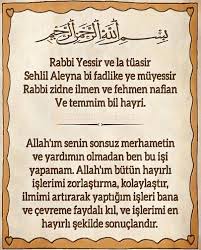 بسم الله الرحمن الرحيم
Rabbi Yessir ve la tüasir
Sehlil Aleyna bi fadlike ye müyessir
Rabbi zidne ilmen ve fehmen naflan
Ve temmim bil hayri.
Allah'ım senin sonsuz merhametin
ve yardımın olmadan ben bu işi
yapamam. Allah'ım bütün hayırlı
işlerimi zorlaştırma, kolaylaştır,
ilmimi artırarak yaptığım işleri bana
ve çevreme faydalı kıl, ve işlerimi en
hayırlı şekilde sonuçlandır.